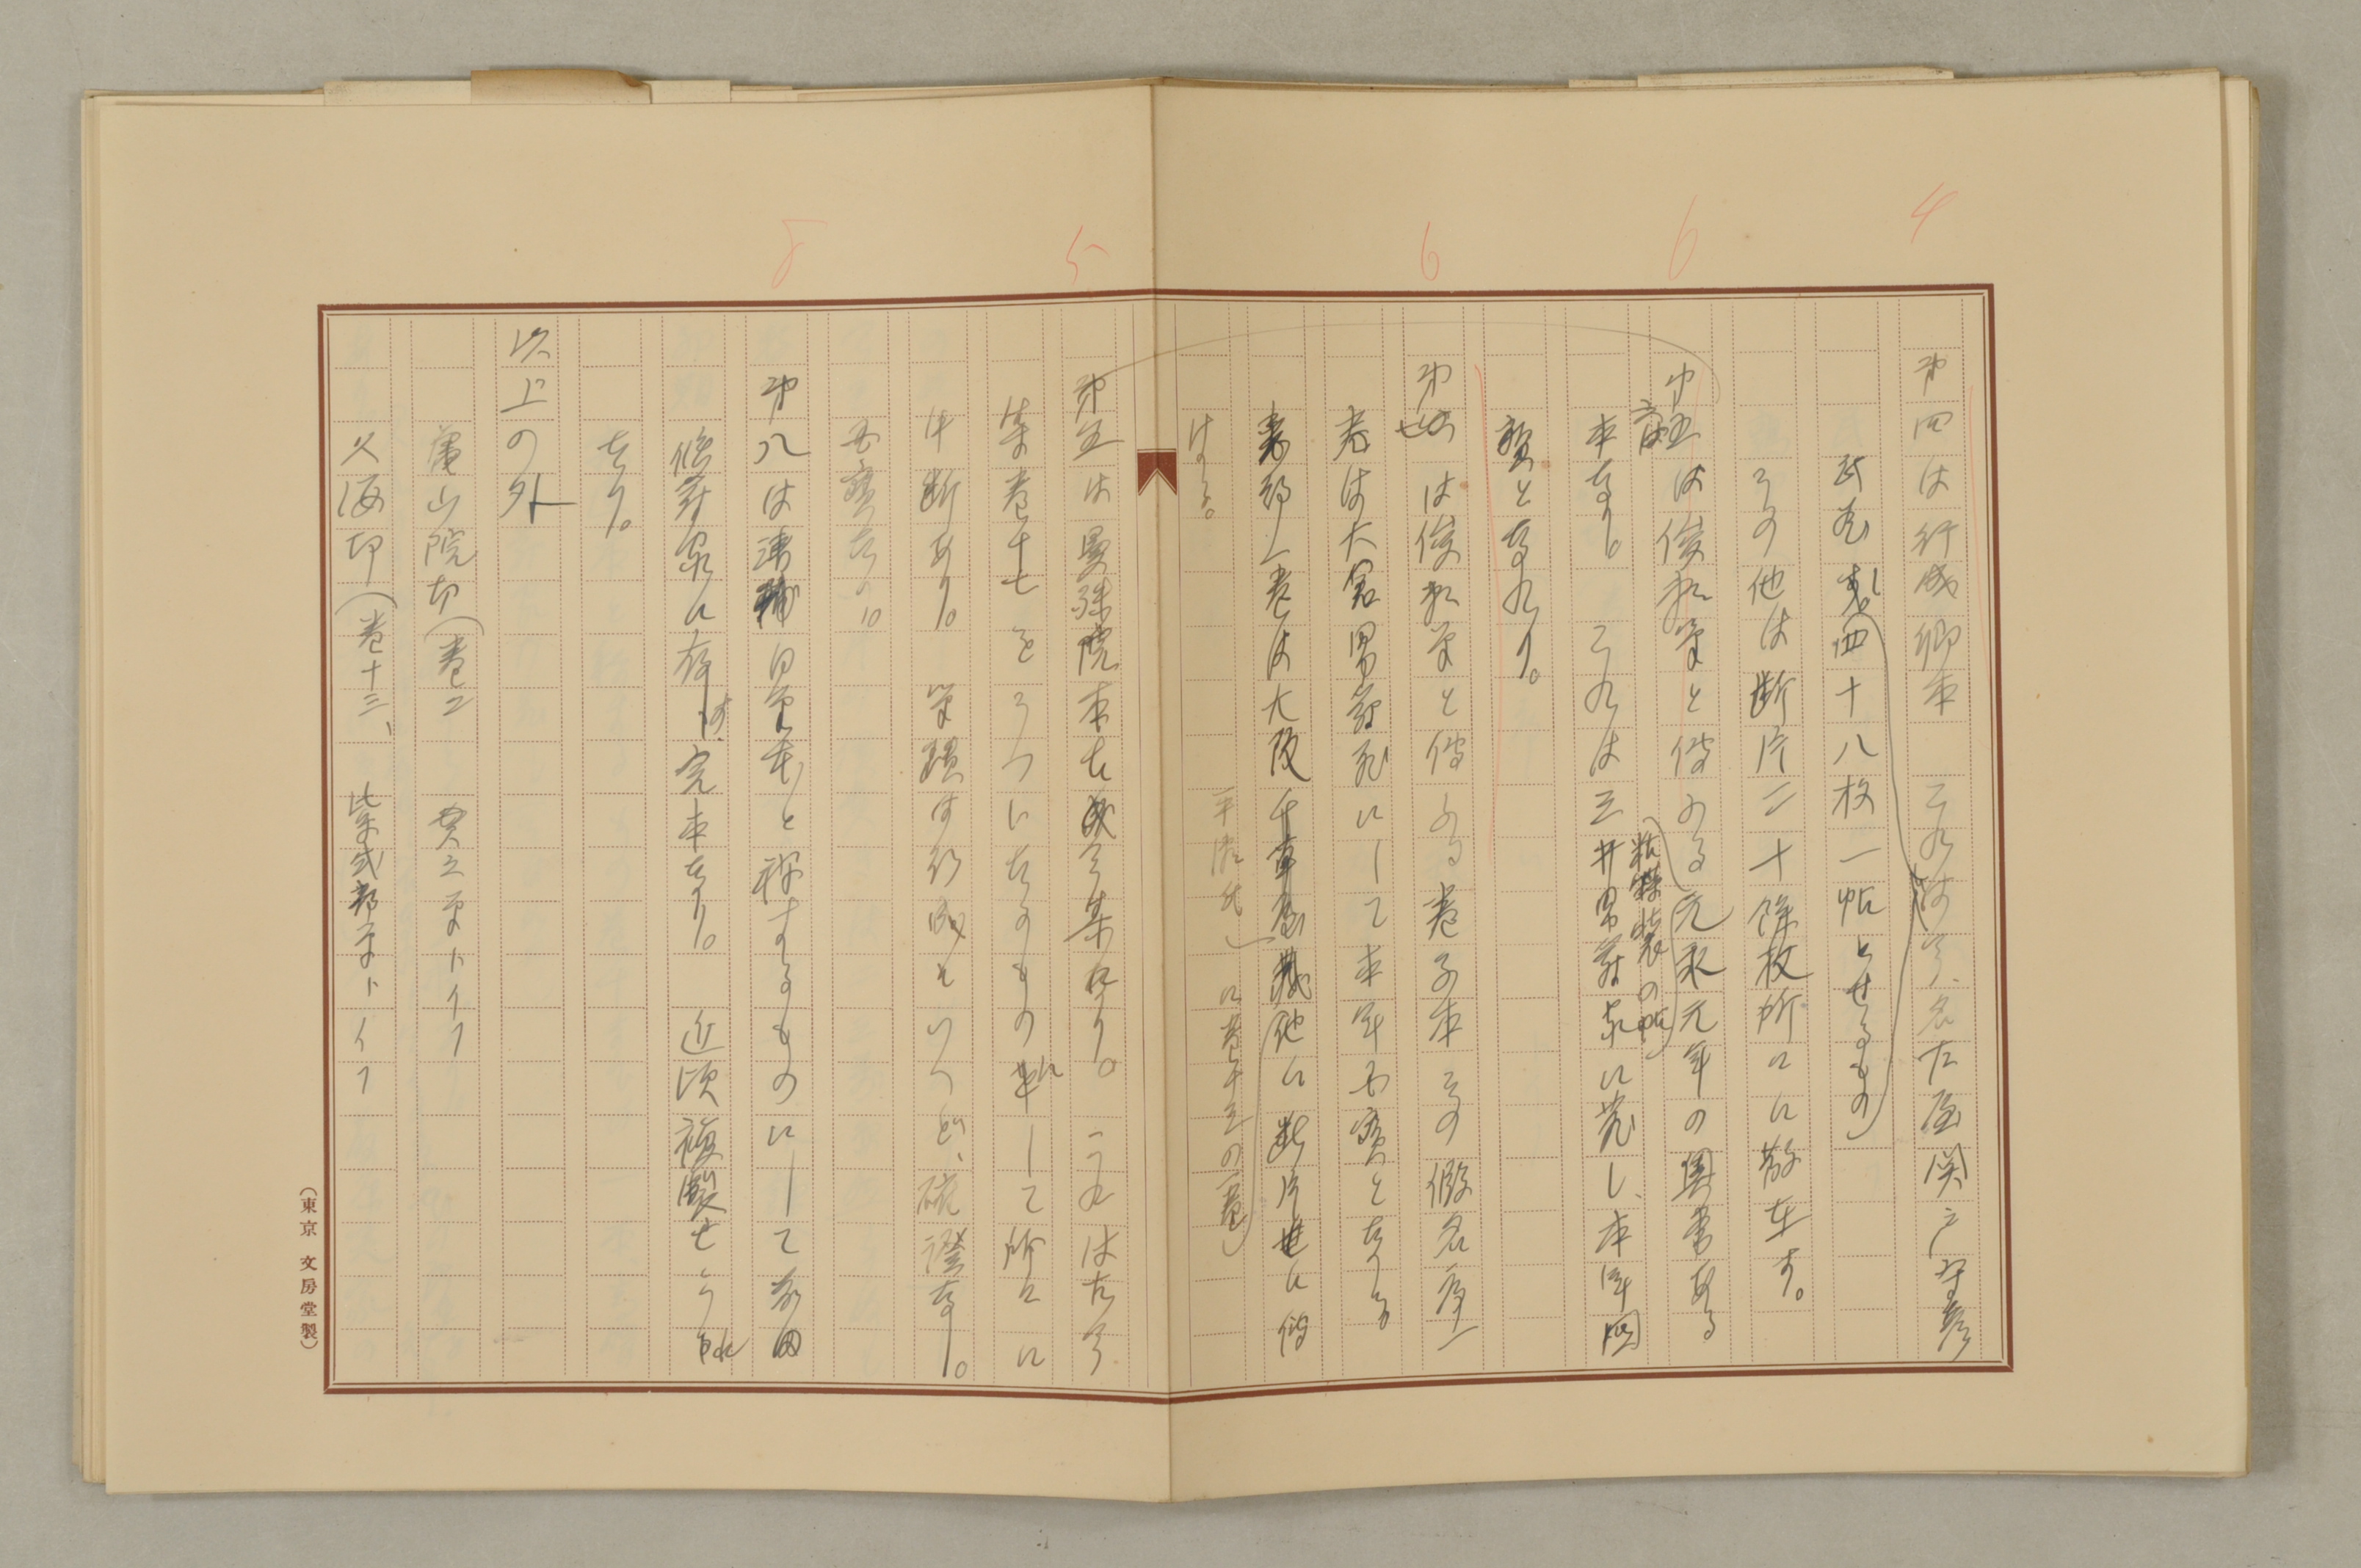 第四は行成卿本 これは今、名古屋関戸守彦
氏が四十八枚一帖とせるもの
その他は断片二十餘枚所々に散在す。
第六は俊頼筆と傳ふる元永元年の奥書ある
粘葉装の帖
本なり。これは三井男爵家に蔵し、本年国
寶となれり。
第七は俊頼筆と傳ふる巻子本その假名序一
巻は大倉男爵家にして本年国寶となりる
巻第一巻は大阪 他に断片世に傳
はる。
に巻十三の一巻
第五は曼殊院本古今集なり。これは古今
集巻十七をうつしたるものにして所々に
断あり。筆蹟は行成といへど、確證なし。
国寶なり。
第八は清輔自筆本と稱するものにして前田
侯爵家に存す、完本なり。近頃複製せられ
たり。
以上の外
亀山院切（巻二 貫之筆トイフ
久海切（巻十三、紫式部筆トイフ
（東京 文房堂製）
4
6
6
5
8